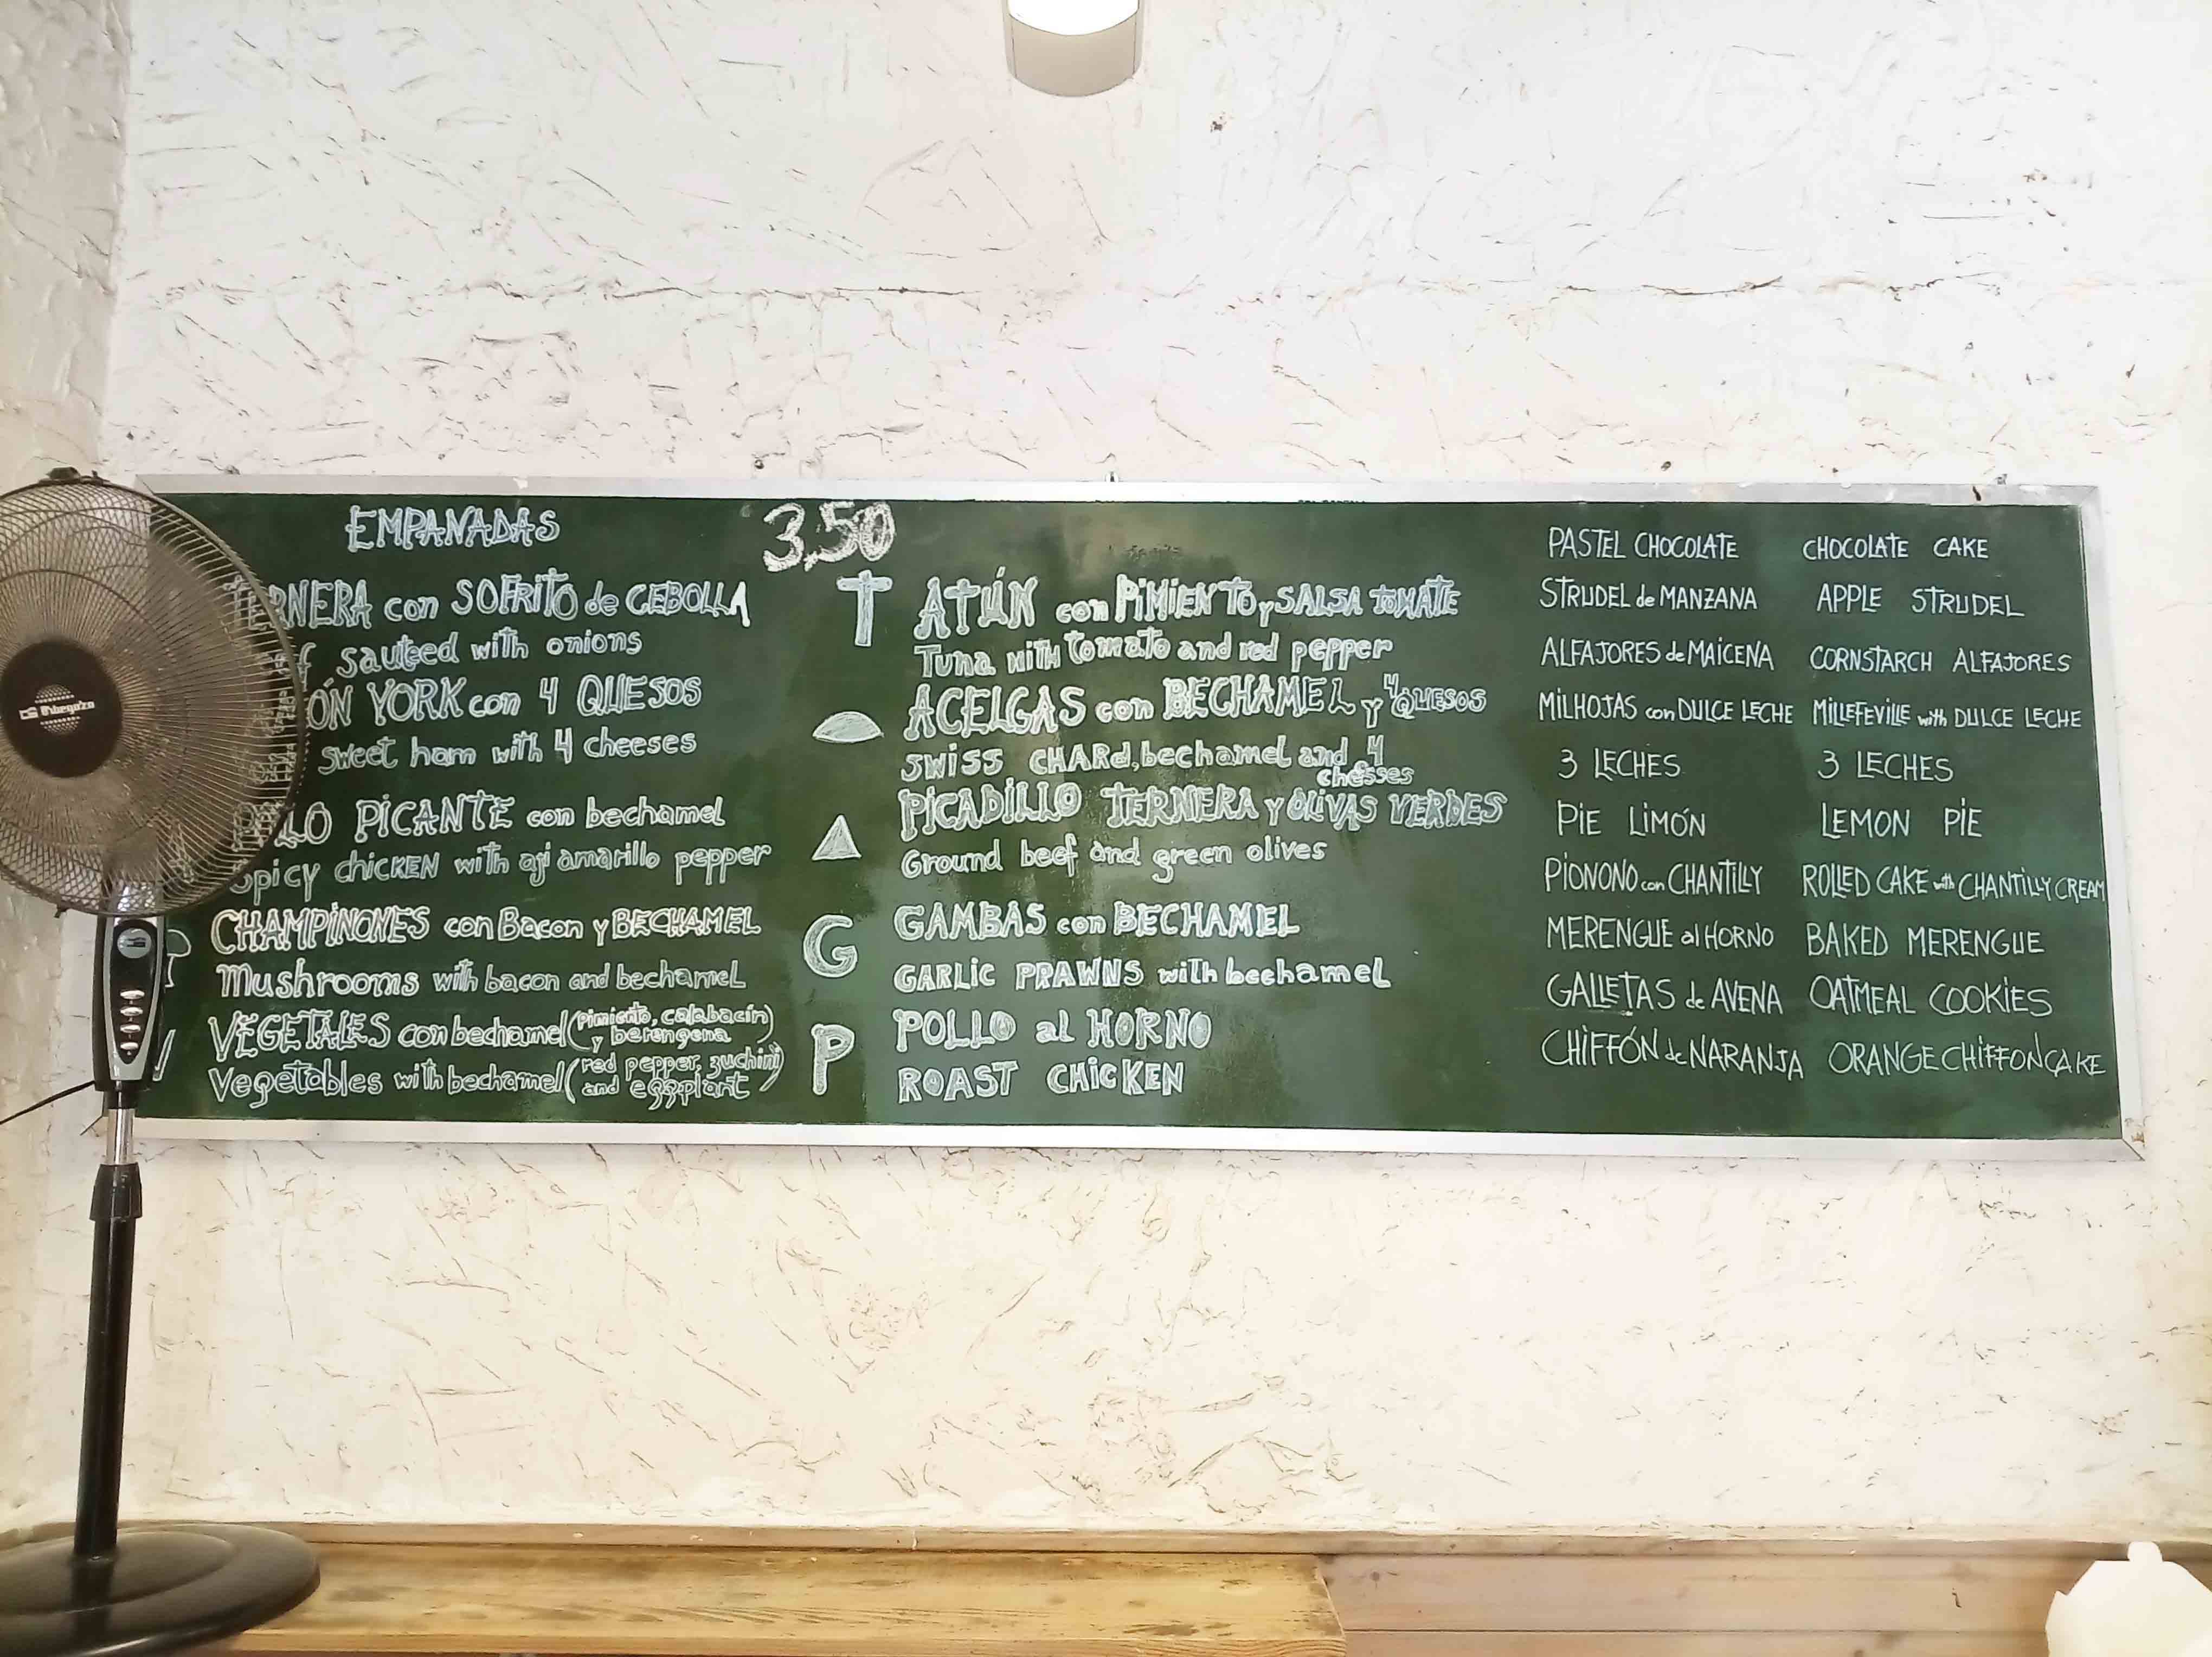 EMPANADAS
3,50
con SOFRITO de CEBOLLA
sauteed with onions
YORK con 4 QUESOS
sweet ham with 4 cheeses
PICANTE con bechamel
spicy chicKEN with aji amarillo pepper
CHAMPIÑONES con Bacon y BECHAMEL
Mushrooms with bacon and bechamel
VEGETALES con bechamel (pimiento, calabacín y berengena)
Vegetables with bechamel (red pepper, zuchini and eggplant)
T
ATÚN con PIMIENTO y SALSA TOMATE
Tuna with tomato and red pepper
ACELGAS con BECHAMEL y 4 QUESOS
SWISS CHARd, bechamel and 4 chesses
PICADILLO TERNERA y OLIVAS VERDES
Ground beef and green olives
G
GAMBAS con BECHAMEL
GARLIC PRAWNS with bechamel
P
POLLO al HORNO
ROAST CHICKEN
PASTEL CHOCOLATE CHOCOLATE CAKE
STRUDEL de MANZANA APPLE STRUDEL
ALFAJORES de MAICENA CORNSTARCH ALFAJORES
MILHOJAS con DULCE LECHE MILLEFEVILLE with DULCE LECHE
3 LECHES 3 LECHES
PIE LIMÓN LEMON PIE
PIONONO con CHANTILLY ROLLED CAKE with CHANTILLY CREAM
MERENGUE al HORNO BAKED MERENGUE
GALLETAS de AVENA OATMEAL COOKIES
CHIFFÓN de NARANJA ORANGE CHIFFON CAKE